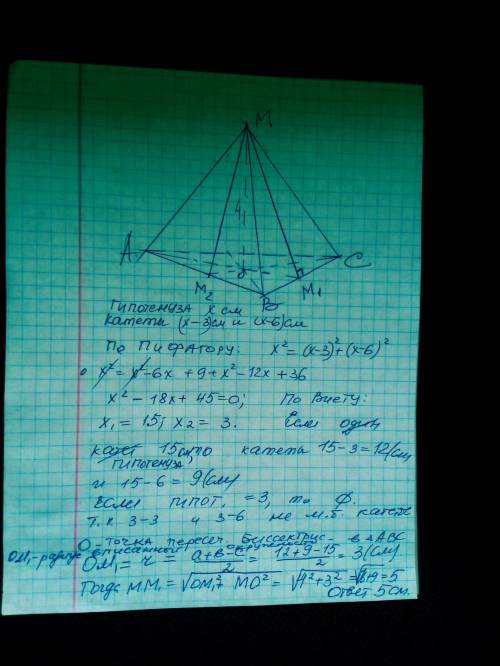 M
4
A
C
O
M₂
B
M₁
Гипотенуза x см
катеты (x-3)см и (x-6)см
По Пифагору: x² = (x-3)² + (x-6)²
x² = x² - 6x + 9 + x² - 12x + 36
x² - 18x + 45 = 0; По Виету:
x₁ = 15; x₂ = 3. Если один
катет 15см, то катеты 15-3=12(см)
гипотенуза,
и 15-6 = 9(см)
Если гипот. =3, то ∅.
т.к 3-3 и 3-6 не м.б. катеты
O - точка перес. биссектрис - в △ABC
OM₁-радиус вписанной окружности
OM₁ = r = a+b-c/2 = 12+9-15/2 = 3(см)
Тогда MM₁ = √OM₁²+MO² = √4²+3² = 5
Ответ 5см.